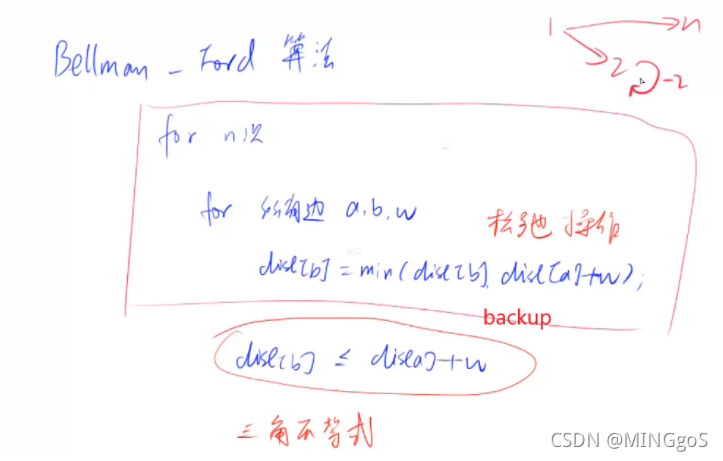 Bellman - Ford 算法
1
n
2
-2
for n次
for 所有边 a,b,w
松弛操作
dist[b] = min(dist[b], dist[a]+w);
backup
dist[b] ≤ dist[a]+w
三角不等式
CSDN @MINGgoS